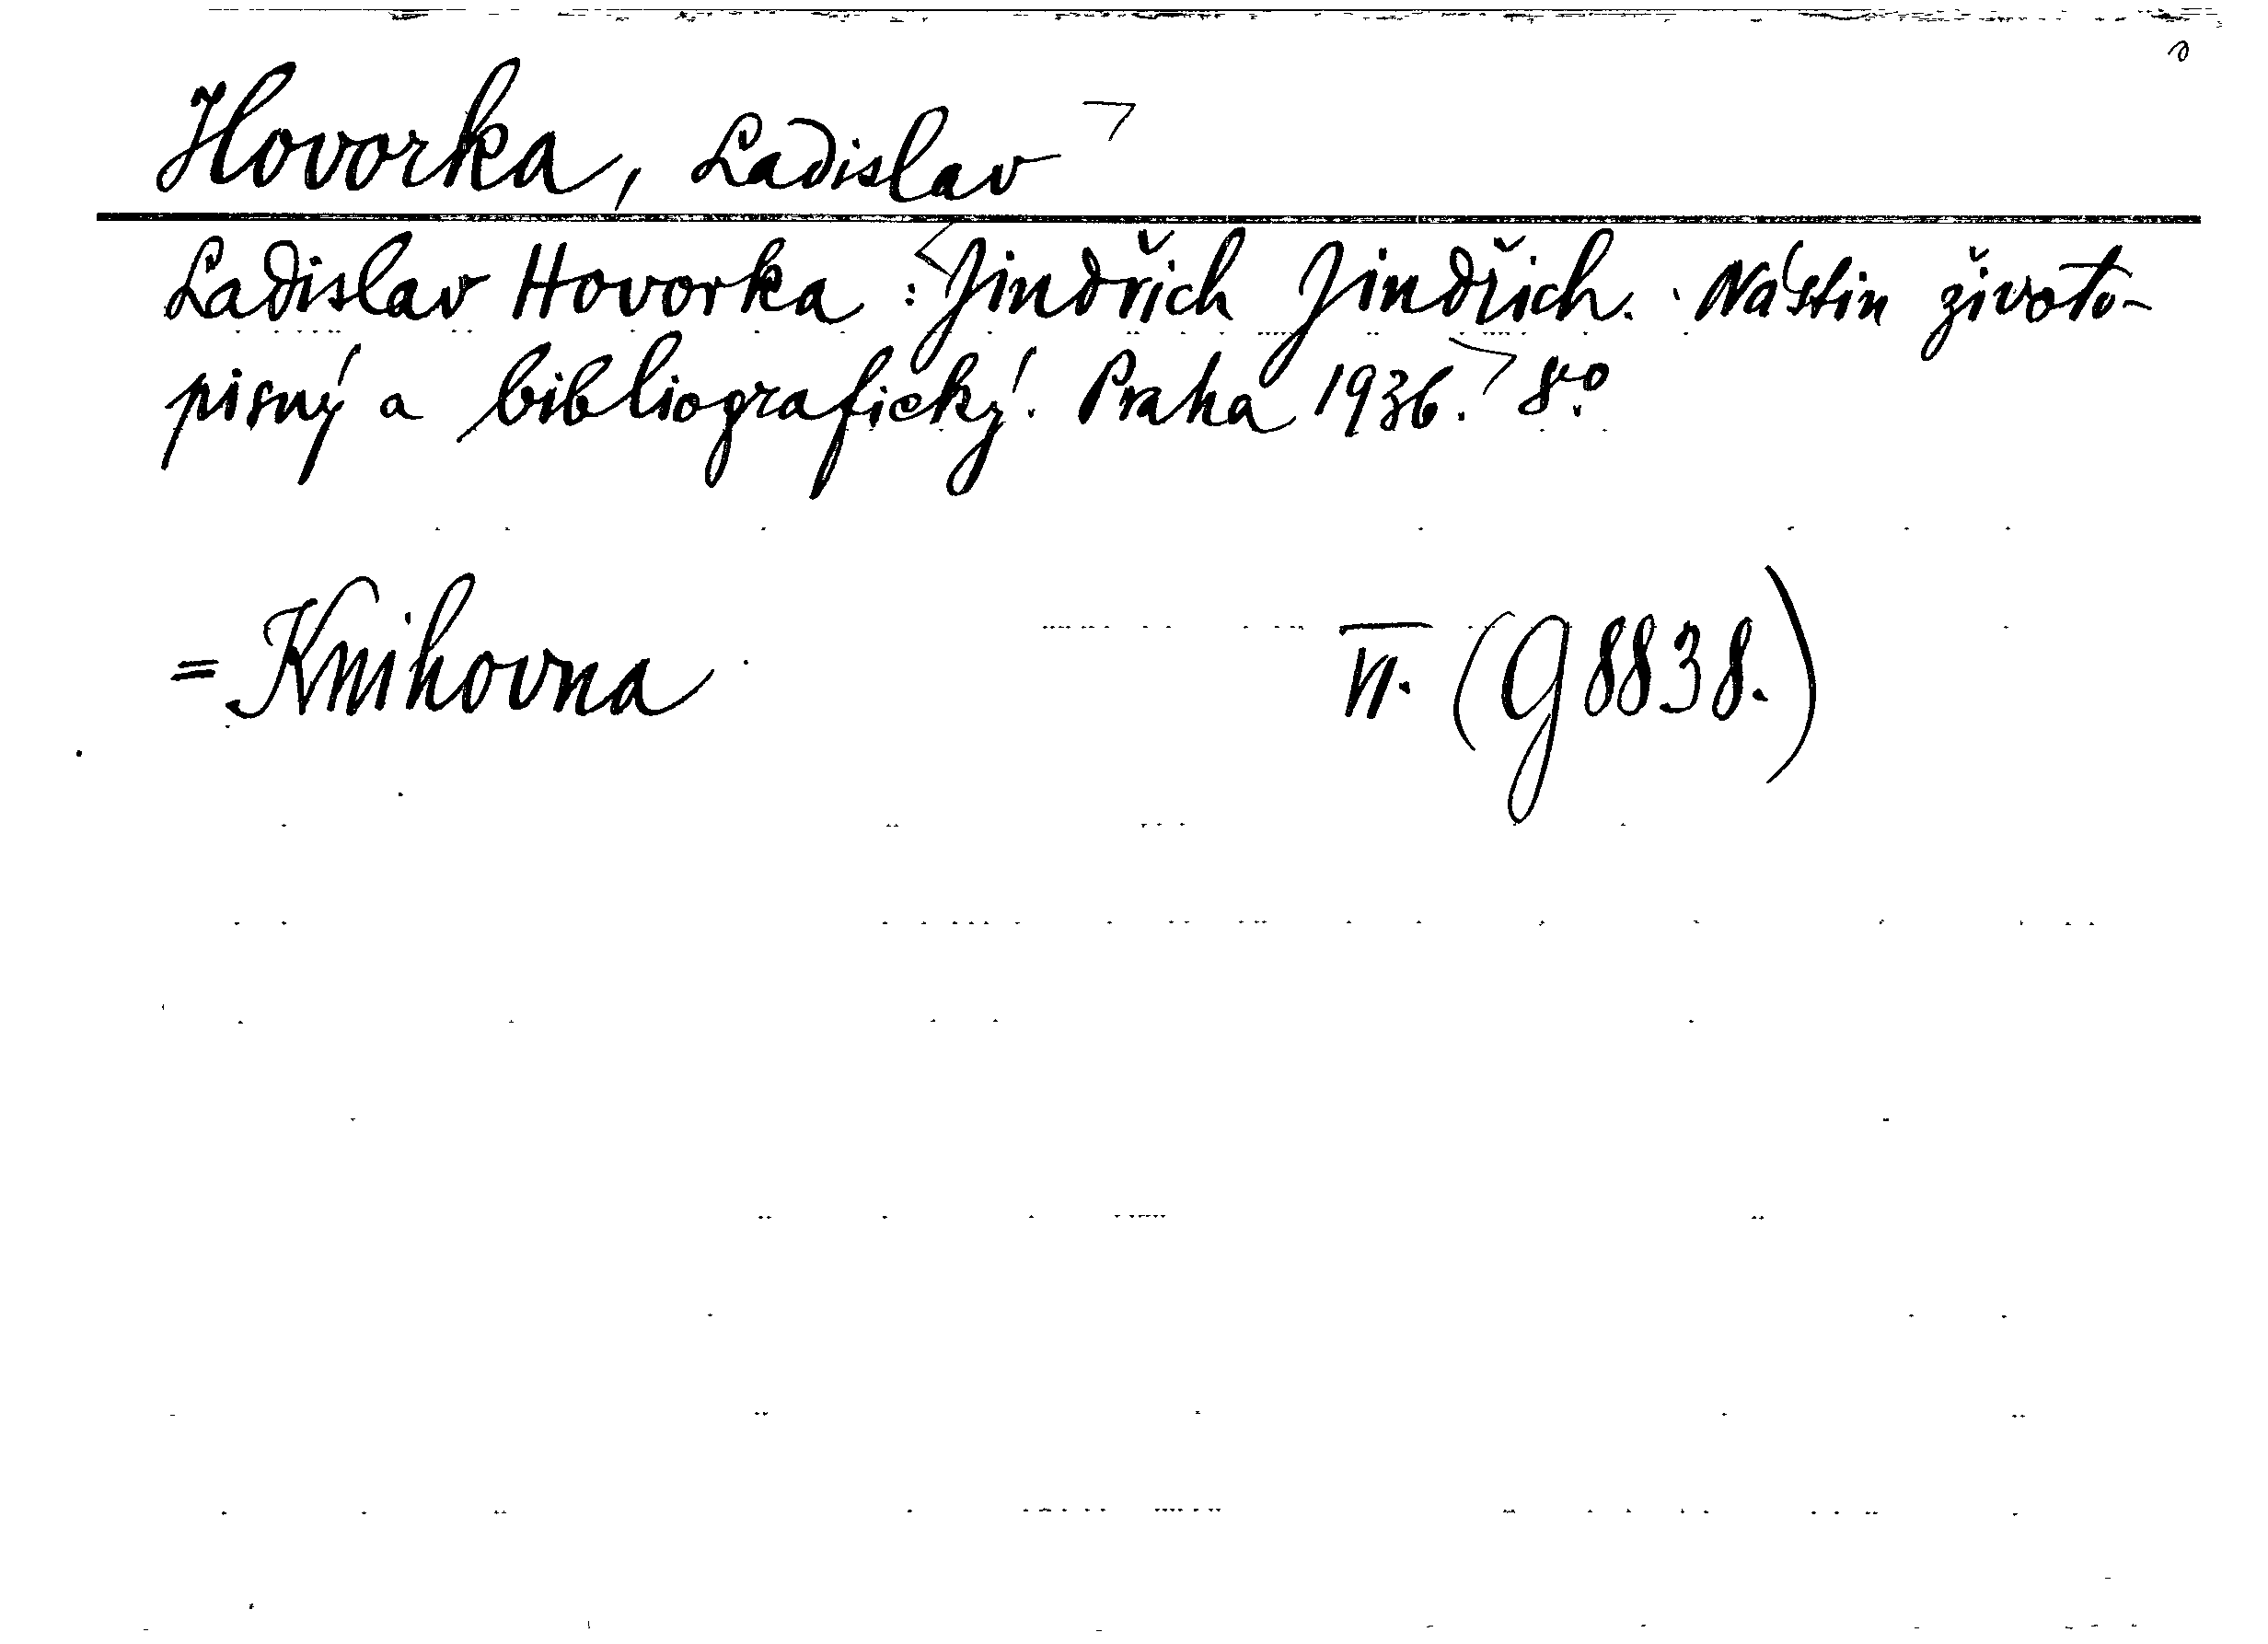 Hovorka, Ladislav
Ladislav Hovorka: Jindřich Jindřich. Nástin životo-
pisný a bibliografický. Praha 1936. 8vo.
= Knihovna VI. (G 8838.)